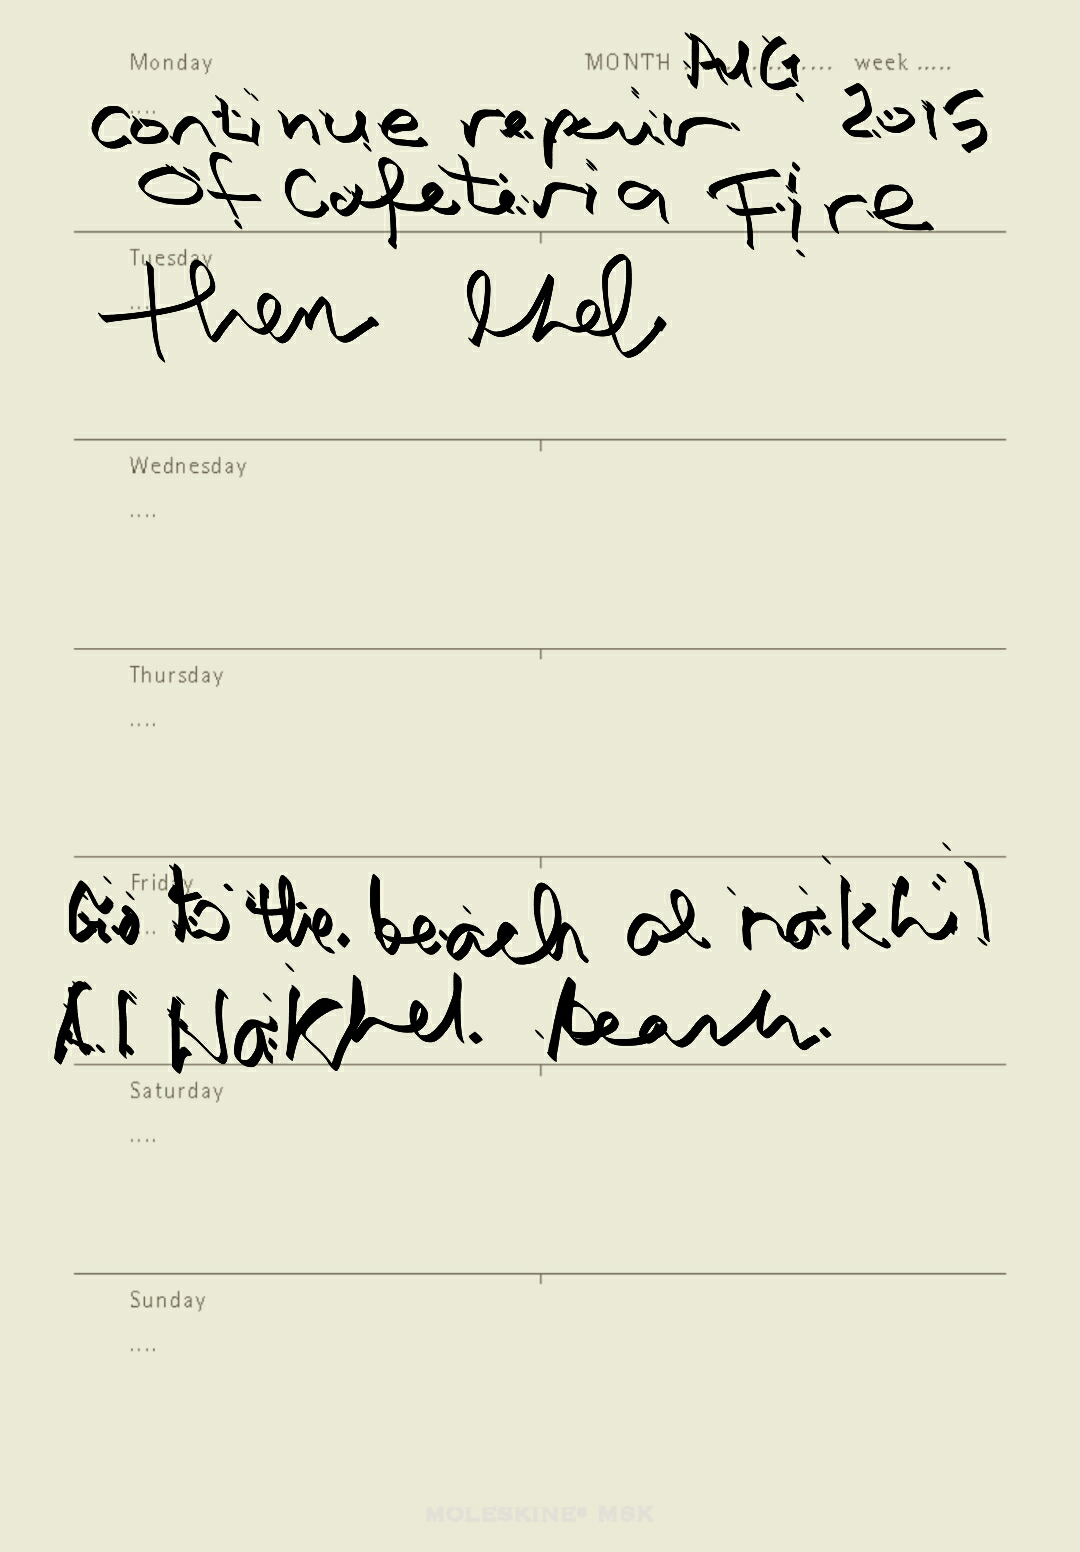 Monday MONTH AUG week .....
continue repair 2015
Of Cafeteria Fire
Tuesday
....
then
Wednesday
....
Thursday
....
Friday
Go to the beach al nakhil
Al Nakhel. beach.
Saturday
....
Sunday
....
MOLESKINE® MSK